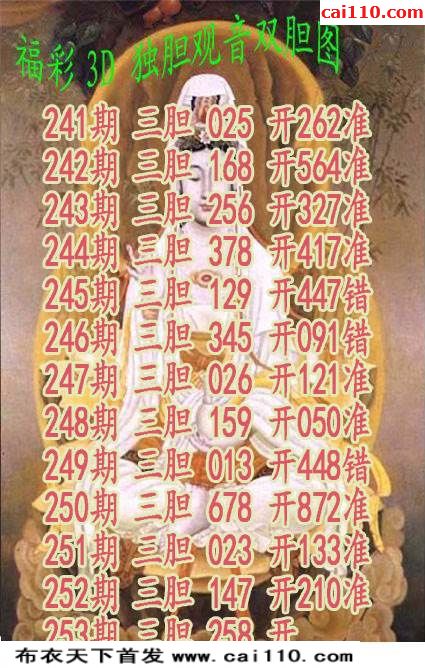 彩民之家
cai110.com
福彩3D 独胆观音双胆图
241期 三胆 025 开262准
242期 三胆 168 开564准
243期 三胆 256 开327准
244期 三胆 378 开417准
245期 三胆 129 开447错
246期 三胆 345 开091错
247期 三胆 026 开121准
248期 三胆 159 开050准
249期 三胆 013 开448错
250期 三胆 678 开872准
251期 三胆 023 开133准
252期 三胆 147 开210准
253期 三胆 258 开
布衣天下首发 www.cai110.com